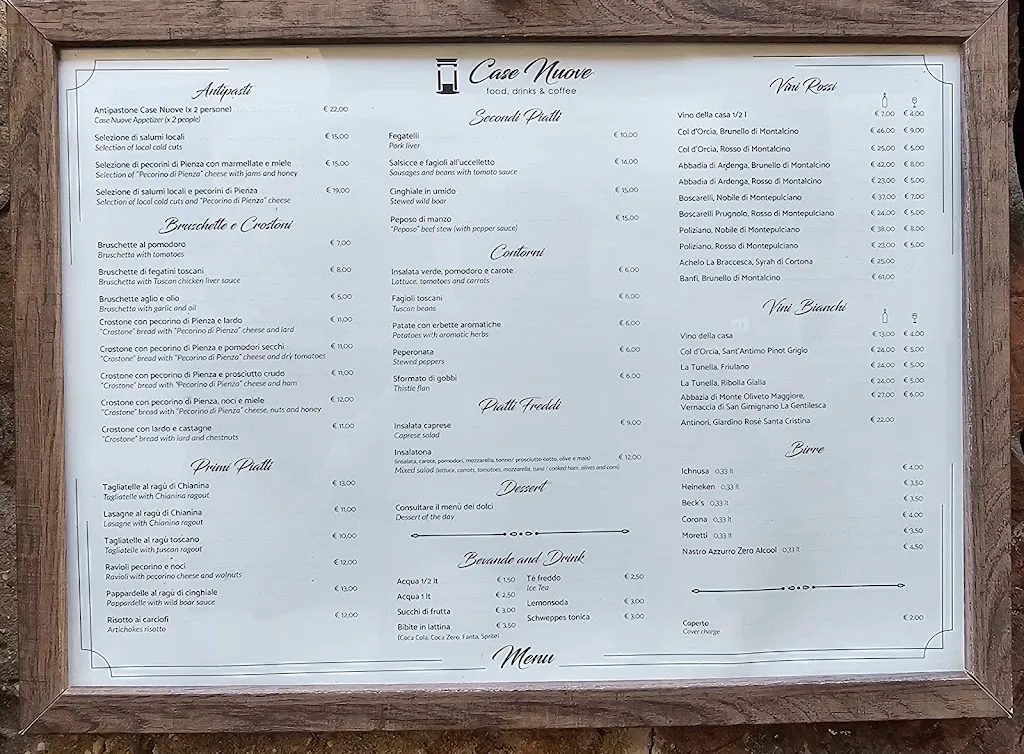 Case Nuove
food, drinks & coffee
Antipasti
Antipastone Case Nuove (x 2 persone) € 22,00
Case Nuove Appetizer (x 2 people)
Selezione di salumi locali € 15,00
Selection of local cold cuts
Selezione di pecorini di Pienza con marmellate e miele € 15,00
Selection of "Pecorino di Pienza" cheese with jams and honey
Selezione di salumi locali e pecorini di Pienza € 19,00
Selection of local cold cuts and "Pecorino di Pienza" cheese
Bruschette e Crostoni
Bruschette al pomodoro € 7,00
Bruschetta with tomatoes
Bruschette di fegatini toscani € 8,00
Bruschetta with Tuscan chicken liver sauce
Bruschette aglio e olio € 5,00
Bruschetta with garlic and oil
Crostone con pecorino di Pienza e lardo € 11,00
"Crostone" bread with "Pecorino di Pienza" cheese and lard
Crostone con pecorino di Pienza e pomodori secchi € 11,00
"Crostone" bread with "Pecorino di Pienza" cheese and dry tomatoes
Crostone con pecorino di Pienza e prosciutto crudo € 11,00
"Crostone" bread with "Pecorino di Pienza" cheese and ham
Crostone con pecorino di Pienza, noci e miele € 12,00
"Crostone" bread with "Pecorino di Pienza" cheese, nuts and honey
Crostone con lardo e castagne € 11,00
"Crostone" bread with lard and chestnuts
Primi Piatti
Tagliatelle al ragù di Chianina € 13,00
Tagliatelle with Chianina ragout
Lasagne al ragù di Chianina € 11,00
Lasagne with Chianina ragout
Tagliatelle al ragù toscano € 10,00
Tagliatelle with tuscan ragout
Ravioli pecorino e noci € 12,00
Ravioli with pecorino cheese and walnuts
Pappardelle al ragù di cinghiale € 13,00
Pappardelle with wild boar sauce
Risotto ai carciofi € 12,00
Artichokes risotto
Secondi Piatti
Fegatelli € 10,00
Pork liver
Salsicce e fagioli all'uccelletto € 14,00
Sausages and beans with tomato sauce
Cinghiale in umido € 15,00
Stewed wild boar
Peposo di manzo € 15,00
"Peposo" beef stew (with pepper sauce)
Contorni
Insalata verde, pomodoro e carote € 6,00
Lattuce, tomatoes and carrots
Fagioli toscani € 6,00
Tuscan beans
Patate con erbette aromatiche € 6,00
Potatoes with aromatic herbs
Peperonata € 6,00
Stewed peppers
Sformato di gobbi € 6,00
Thistle flan
Piatti Freddi
Insalata caprese € 9,00
Caprese salad
Insalatona € 12,00
(insalata, carote, pomodori, mozzarella, tonno/ prosciutto cotto, olive e mais)
Mixed salad (lettuce, carrots, tomatoes, mozzarella, tuna / cooked ham, olives and corn)
Dessert
Consultare il menù dei dolci
Dessert of the day
Bevande and Drink
Acqua 1/2 lt € 1,50
Acqua 1 lt € 2,50
Succhi di frutta € 3,00
Bibite in lattina € 3,50
(Coca Cola, Coca Zero, Fanta, Sprite)
Té freddo € 2,50
Ice Tea
Lemonsoda € 3,00
Schweppes tonica € 3,00
Vini Rossi
Vino della casa 1/2 l € 7,00 € 4,00
Col d'Orcia, Brunello di Montalcino € 46,00 € 9,00
Col d'Orcia, Rosso di Montalcino € 25,00 € 5,00
Abbadia di Ardenga, Brunello di Montalcino € 42,00 € 8,00
Abbadia di Ardenga, Rosso di Montalcino € 23,00 € 5,00
Boscarelli, Nobile di Montepulciano € 37,00 € 7,00
Boscarelli Prugnolo, Rosso di Montepulciano € 24,00 € 5,00
Poliziano, Nobile di Montepulciano € 38,00 € 8,00
Poliziano, Rosso di Montepulciano € 23,00 € 5,00
Achelo La Braccesca, Syrah di Cortona € 25,00
Banfi, Brunello di Montalcino € 61,00
Vini Bianchi
Vino della casa € 13,00 € 4,00
Col d'Orcia, Sant'Antimo Pinot Grigio € 24,00 € 5,00
La Tunella, Friulano € 24,00 € 5,00
La Tunella, Ribolla Gialla € 24,00 € 5,00
Abbazia di Monte Oliveto Maggiore, € 27,00 € 6,00
Vernaccia di San Gimignano La Gentilesca
Antinori, Giardino Rosé Santa Cristina € 22,00
Birre
Ichnusa 0,33 lt € 4,00
Heineken 0,33 lt € 3,50
Beck's 0,33 lt € 3,50
Corona 0,33 lt € 4,00
Moretti 0,33 lt € 3,50
Nastro Azzurro Zero Alcool 0,33 lt € 4,50
Coperto € 2,00
Cover charge
Menu